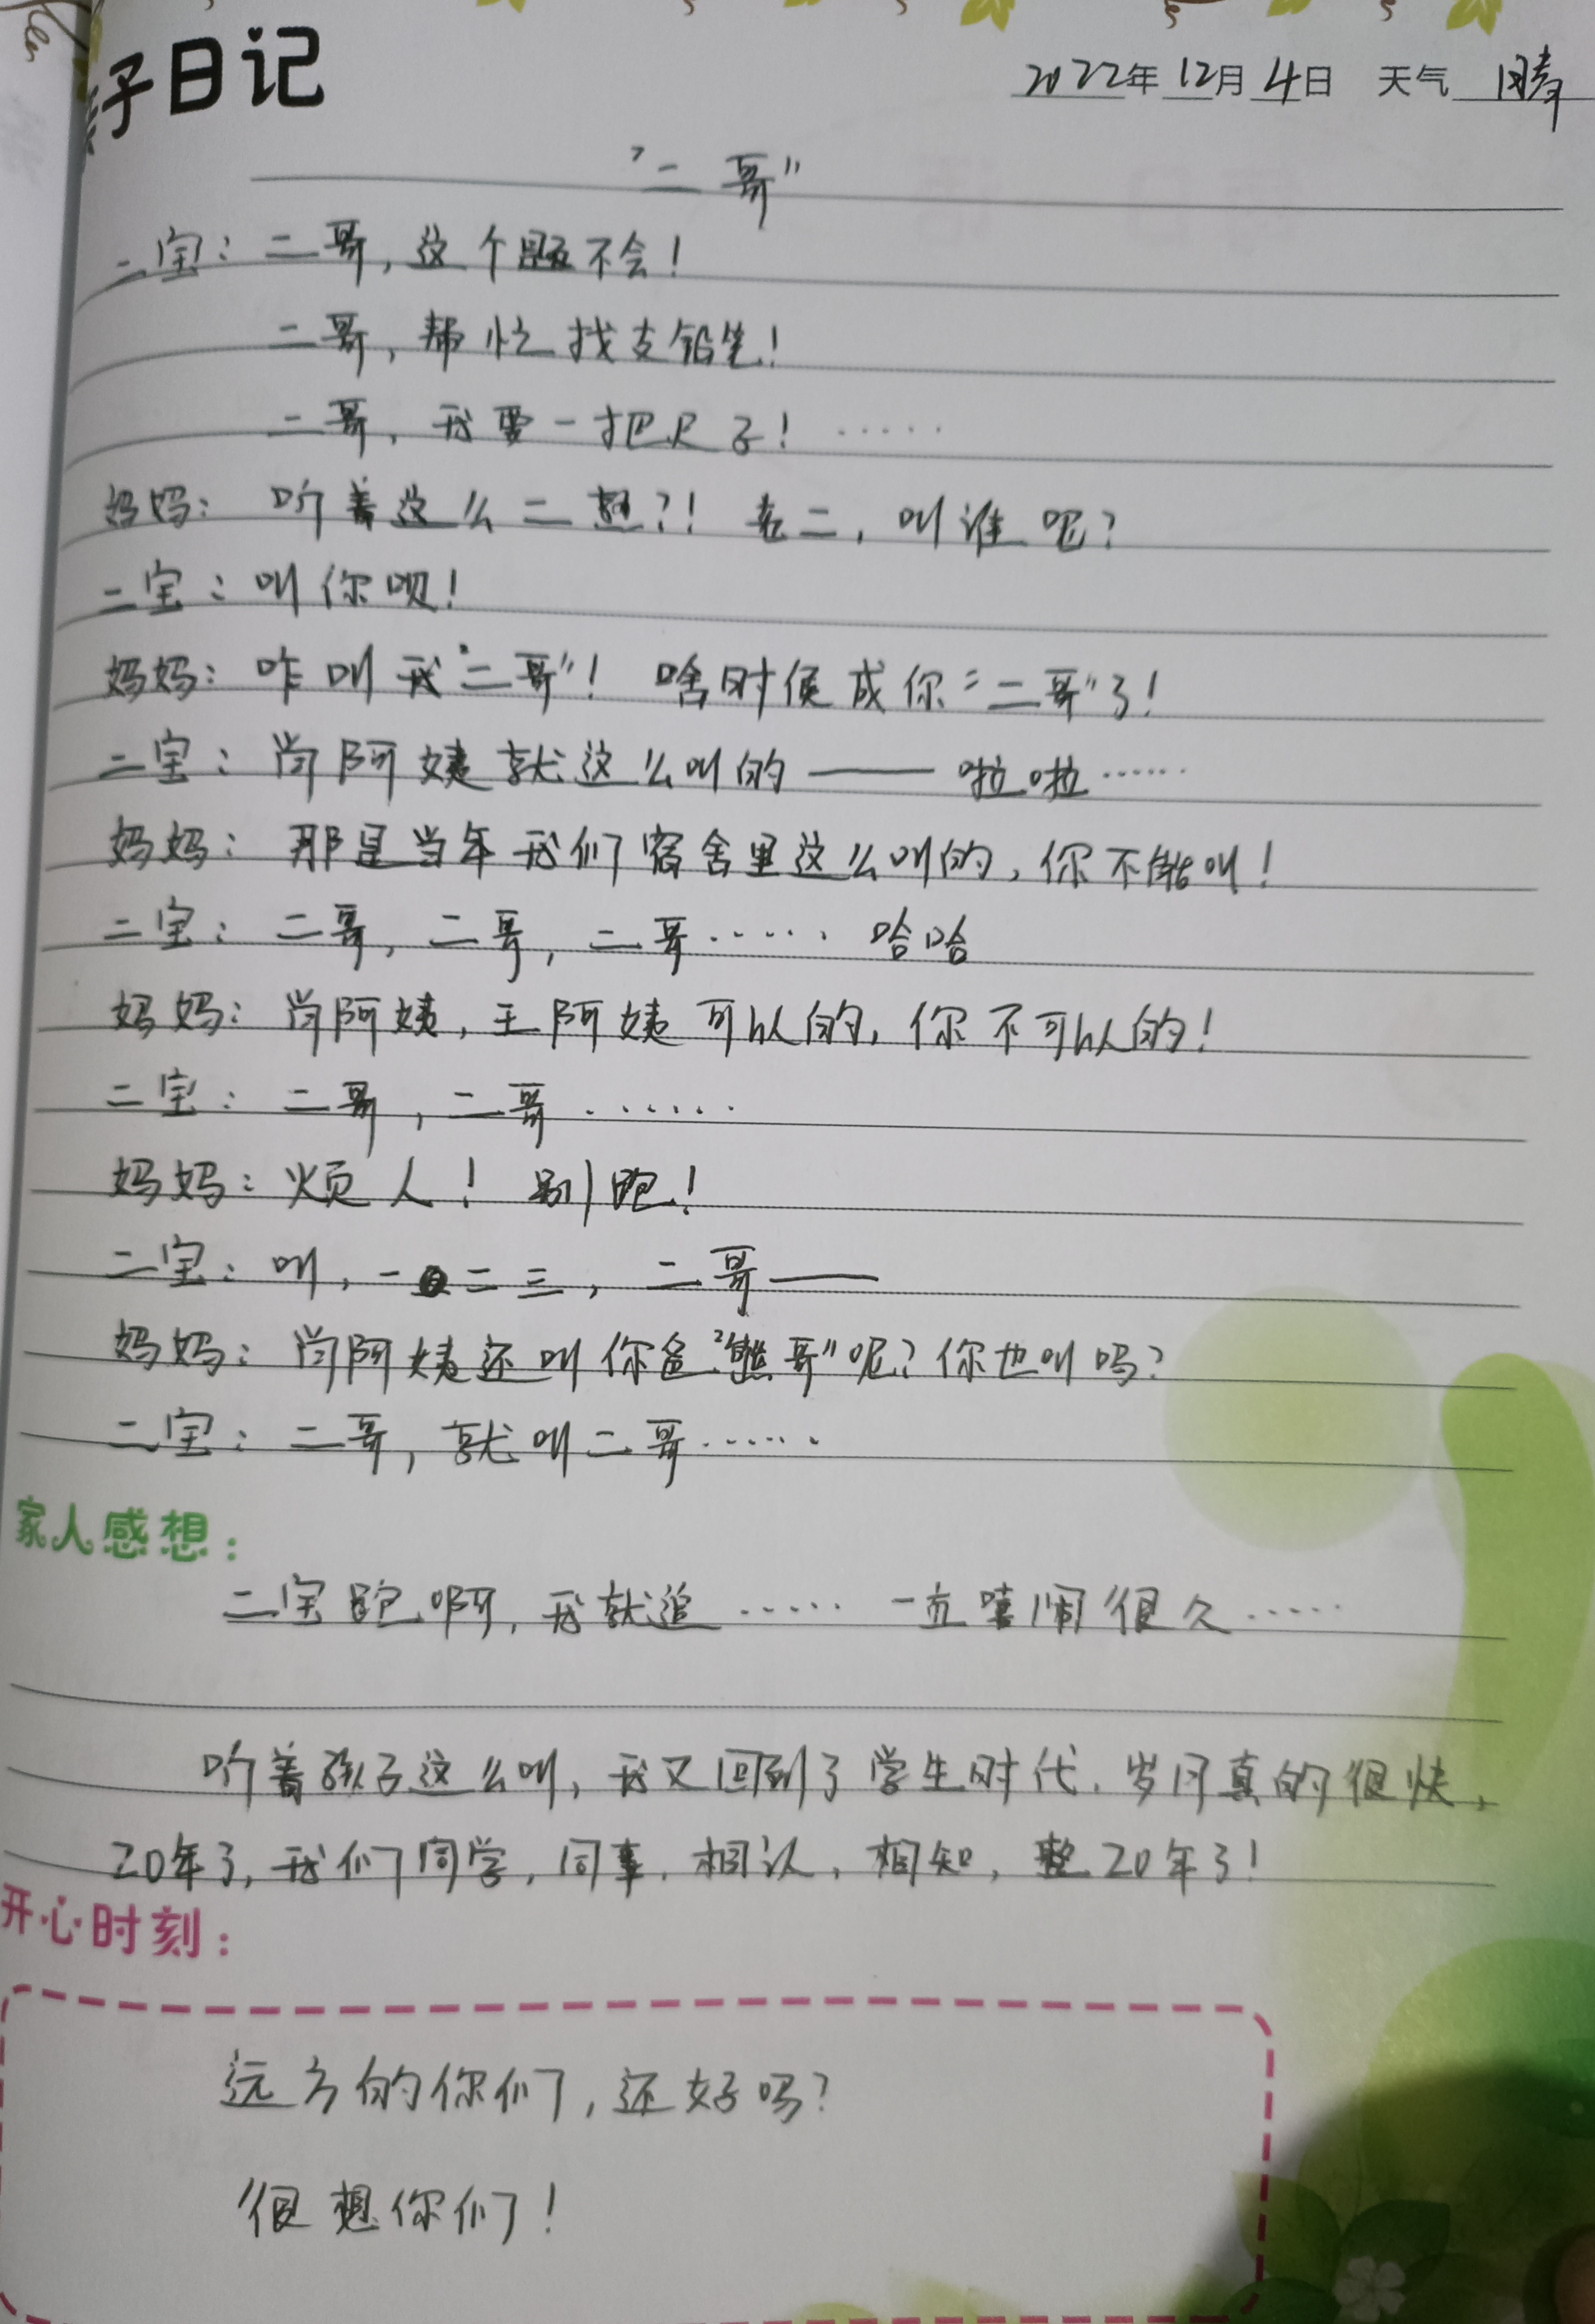 子日记
2022年12月4日 天气 晴
"二哥"
二宝：二哥，这个题不会！
二哥，帮忙找支铅笔！
二哥，我要一把尺子！……
妈妈：听着这么二想？！老二，叫谁呢？
二宝：叫你呗！
妈妈：咋叫我"二哥"！啥时候成你"二哥"了！
二宝：尚阿姨就这么叫的——啦啦……
妈妈：那是当年我们宿舍里这么叫的，你不能叫！
二宝：二哥，二哥，二哥……哈哈
妈妈：尚阿姨，王阿姨可以的，你不可以的！
二宝：二哥，二哥……
妈妈：烦人！别跑！
二宝：叫，一二三，二哥——
妈妈：尚阿姨还叫你爸"熊哥"呢？你也叫吗？
二宝：二哥，就叫二哥……
家人感想：
二宝跑啊，我就追……一直嘻闹很久……
听着孩子这么叫，我又回到了学生时代，岁月真的很快，
20年了，我们同学，同事，相认，相知，整20年了！
开心时刻：
远方的你们，还好吗？
很想你们！